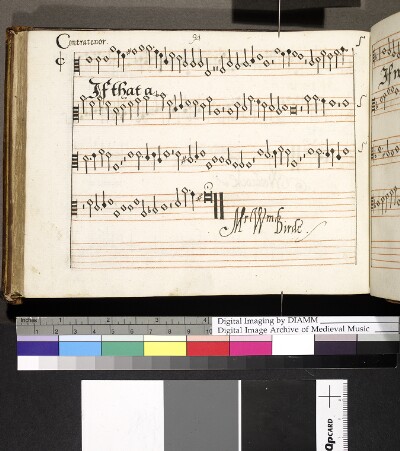 Contratenor.
If that a
Mr Wm Birde.
inches
Digital Imaging by DIAMM
Digital Image Archive of Medieval Music